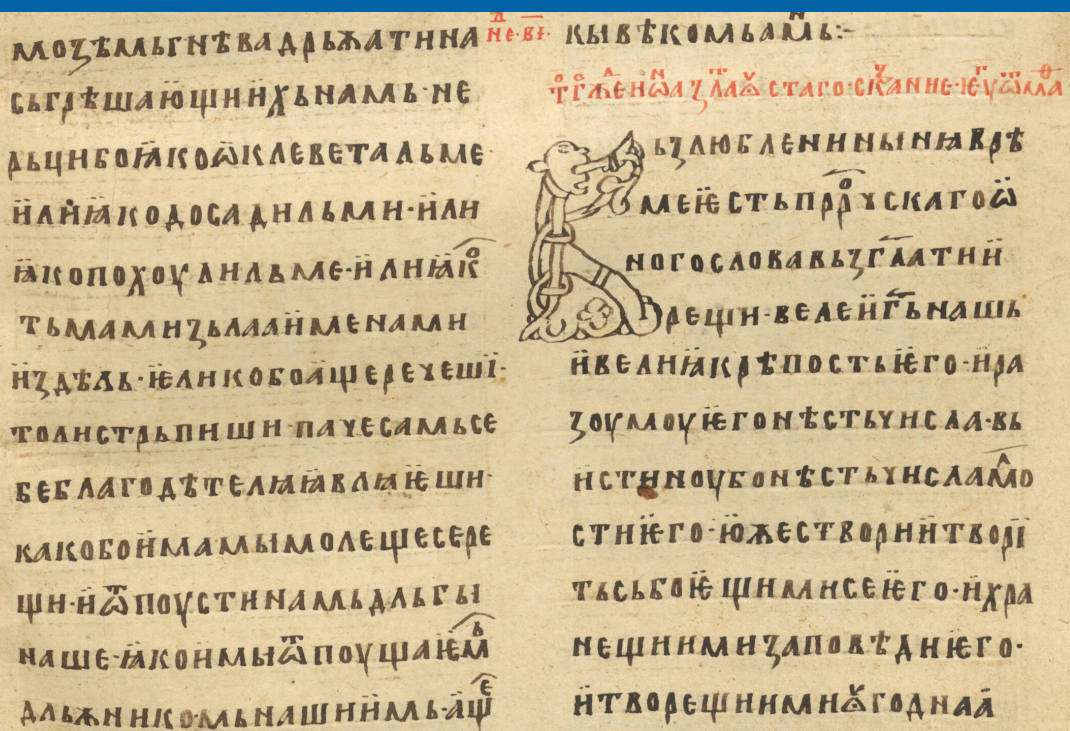 мозѣмльгнѣвадрьжатинна
сьгрѣшающиихьнамь·не
рьцибоꙗкоѡклеветальме·
илиꙗкодосадильми·или
ꙗкопохоулильме·илиꙗкᲂ҇
тьмамизьлааименами
издѣль·ѥликобоащеречеші·
толистрьпиши·пачесамьсе
беблагодѣтелꙗꙗвлꙗѥши·
какобоимамымолещесере
щи·иѿпоустинамльдльгы
наше·ꙗкоимыѿпоущаѥмⸯ
дльжникомьнашиимь·аще
не·ві·
кывѣкомьамⷩ҇ь:-
ьзлюбленинынꙗврѣ
меѥстьпррⷪ҇ускагоѡ
ногословавьзг҃латии
рещи·велеиг҃ьнашь
ивелиꙗкрѣпостьѥго·ира
зоумоуѥгонѣстьчисла·вь
истиноубонѣстьчисламлⷭ҇о
стиѥго·южествориитворї
тьсьбоѥщимисеѥго·ихра
нещиимизаповѣдиѥго·
итворещиимиꙋгоднаа